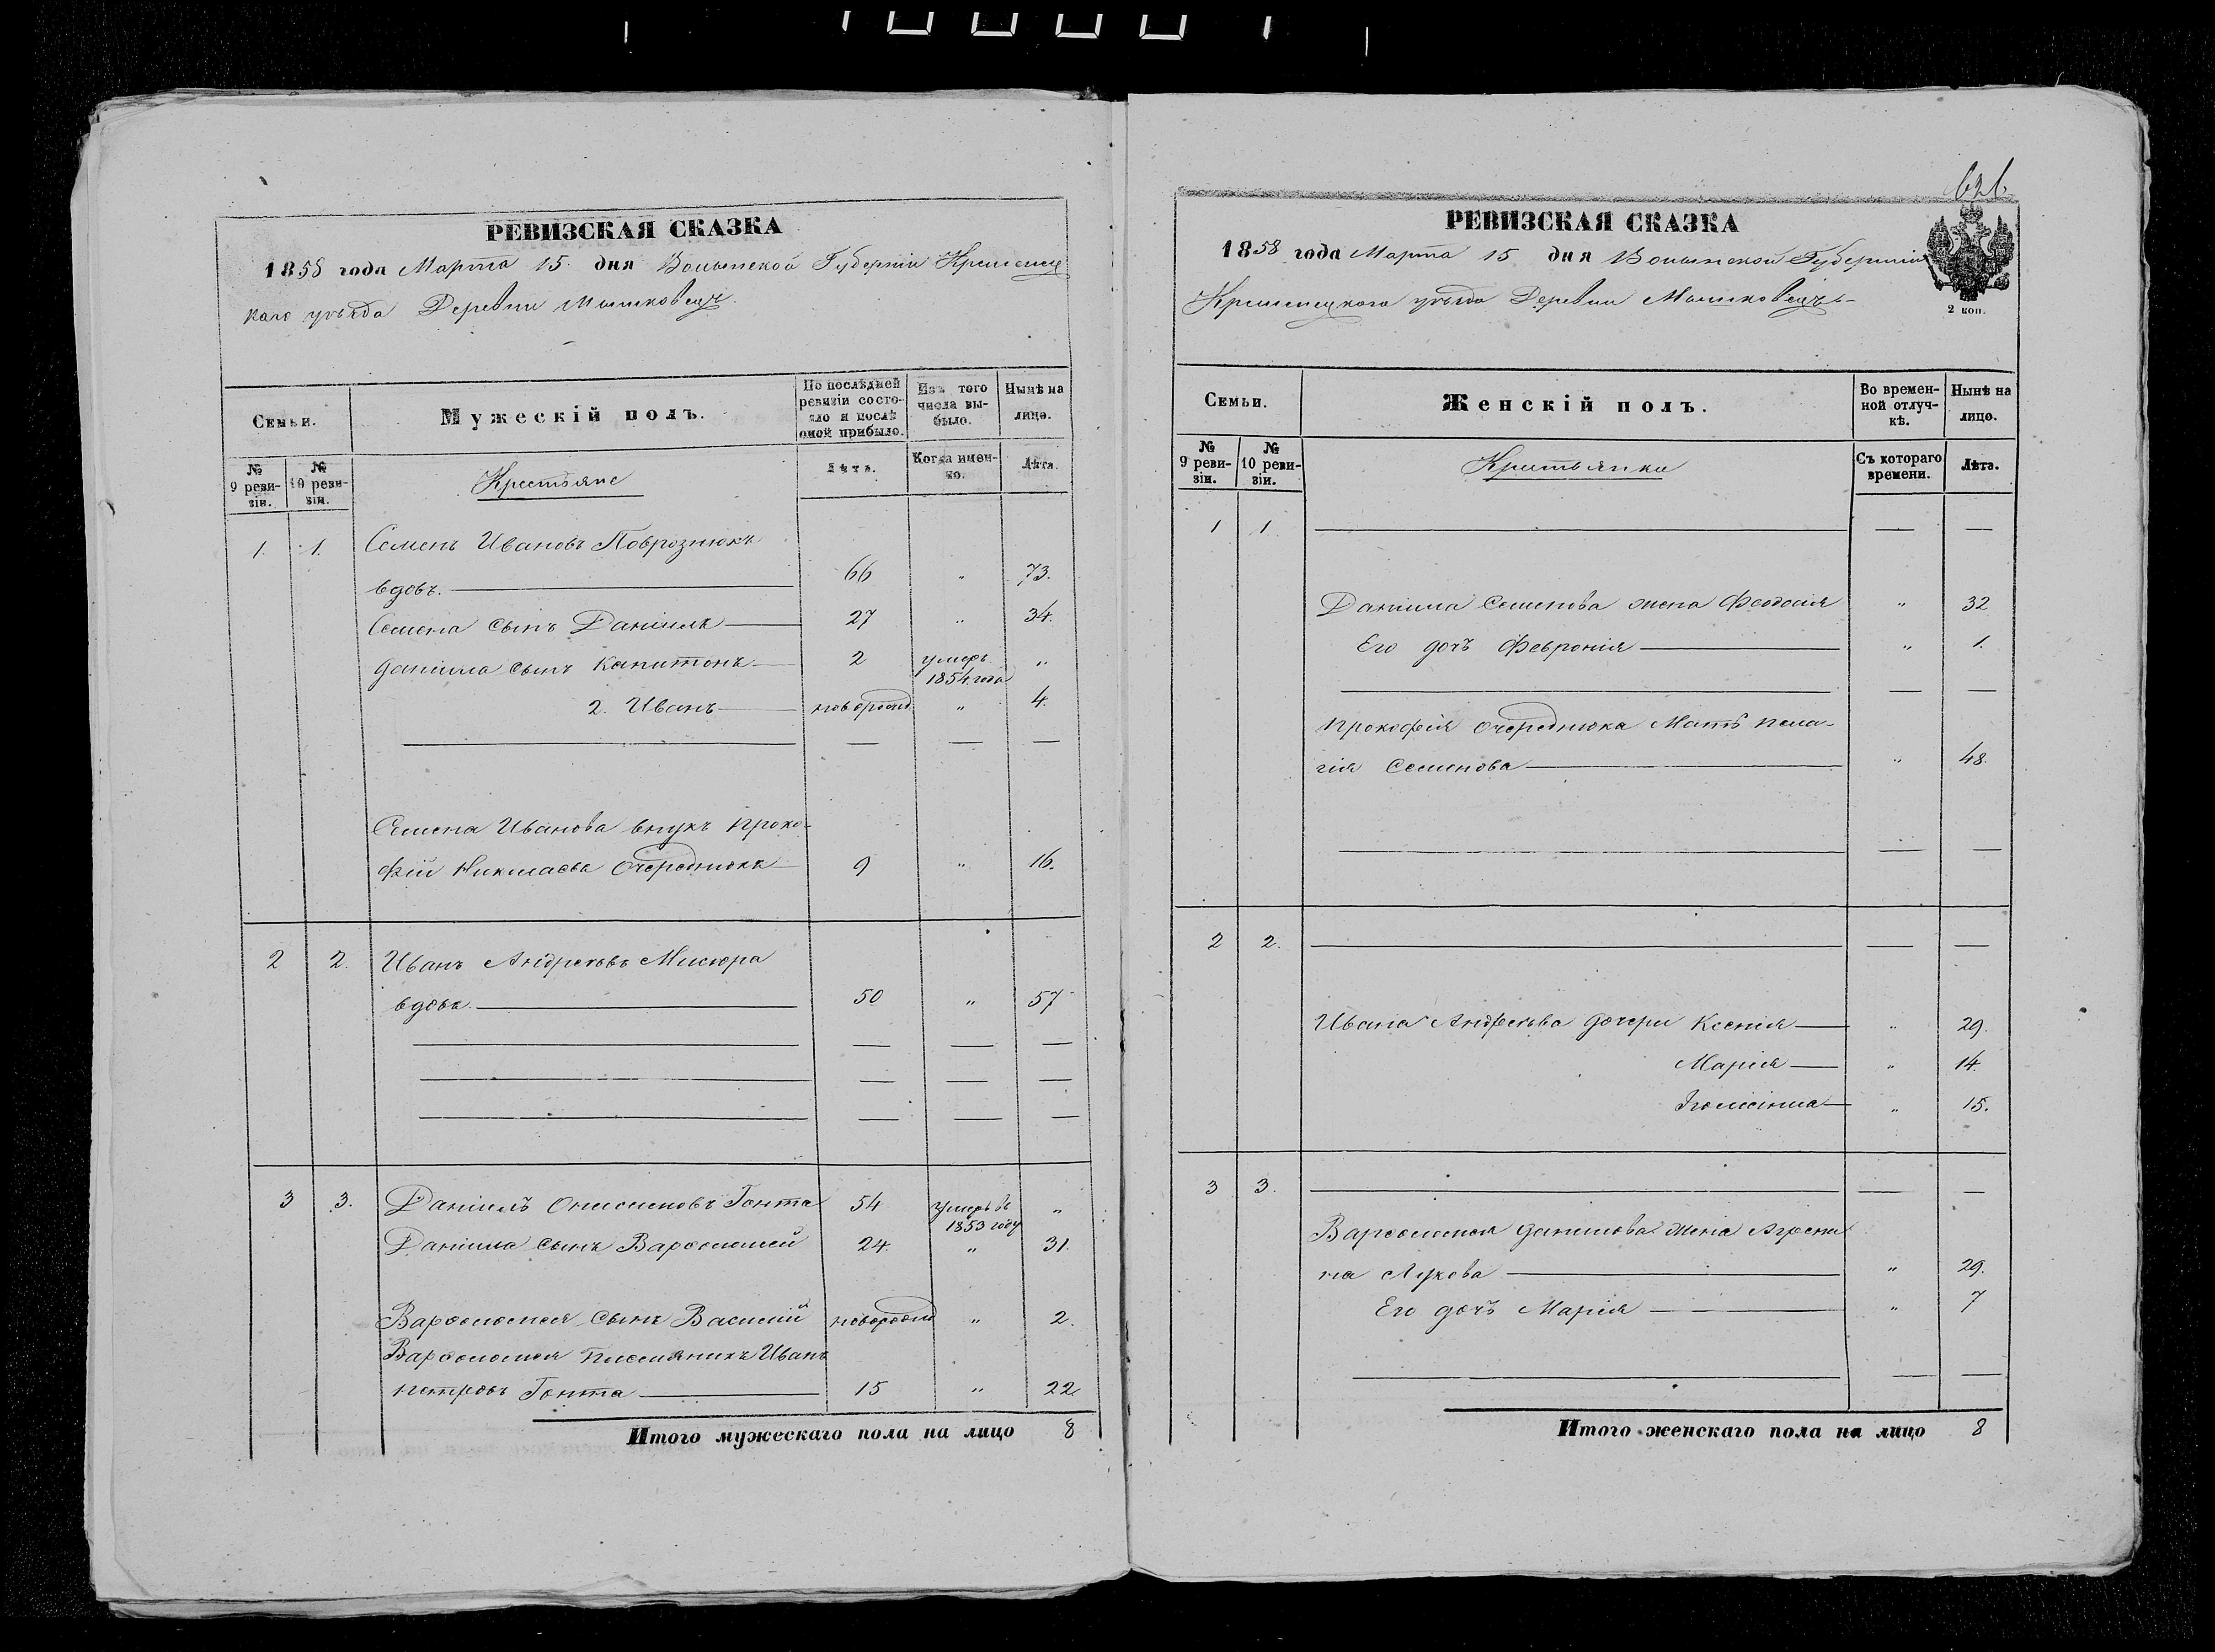 РЕВИЗСКАЯ СКАЗКА
1858 года Марта 15 дня Волынской Губерніи Кременец
каго уѣзда Деревни Мышковецъ
Семьи.
Мужескій полъ.
По послѣдней ревизіи состояло и послѣ оной прибыло.
Изъ того числа выбыло.
Нынѣ на лицо.
№ 9 ревизіи.
№ 10 ревизіи.
Крестьяне
Лѣта.
Когда именно.
Лѣта.
1. 1. Семенъ Ивановъ Поврознюкъ
вдовъ. 66 „ 73.
Семена сынъ Даніилъ 27 „ 34.
Даніила сынъ Капитонъ 2 умеръ 1854 года „
2. Иванъ новорожд. „ 4.
Семена Иванова внукъ Проко-
фій Николаевъ Очереднюкъ 9 „ 16.
2 2. Иванъ Андреевъ Мисюра
вдовъ 50 „ 57
3 3. Даніилъ Онисимовъ Гонта 54 умеръ въ 1853 году „
Даніила сынъ Варфоломей 24. „ 31.
Варфоломея сынъ Василій новорожд „ 2.
Варфоломея племяникъ Иванъ
Петровъ Гонта 15 „ 22
Итого мужескаго пола на лицо 8
626.
РЕВИЗСКАЯ СКАЗКА
1858 года Марта 15 дня Волынской Губерніи
Кременецкаго уѣзда Деревни Мышковецъ
2 коп.
Семьи.
Женскій полъ.
Во временной отлучкѣ.
Нынѣ на лицо.
№ 9 ревизіи.
№ 10 ревизіи.
Крестьянки
Съ котораго времени.
Лѣта.
1 1.
Даніила Семенова жена Феодосія „ 32
Его дочь Февронія „ 1.
Прокофія Очереднюка Мать Пела-
гія Семенова „ 48.
2 2.
Ивана Андреева дочери Ксенія „ 29.
Марія „ 14.
„ 15.
3 3.
Варфоломея Данилова жена Агрепи
на Лукова „ 29.
Его дочь Марія „ 7
Итого женскаго пола на лицо 8